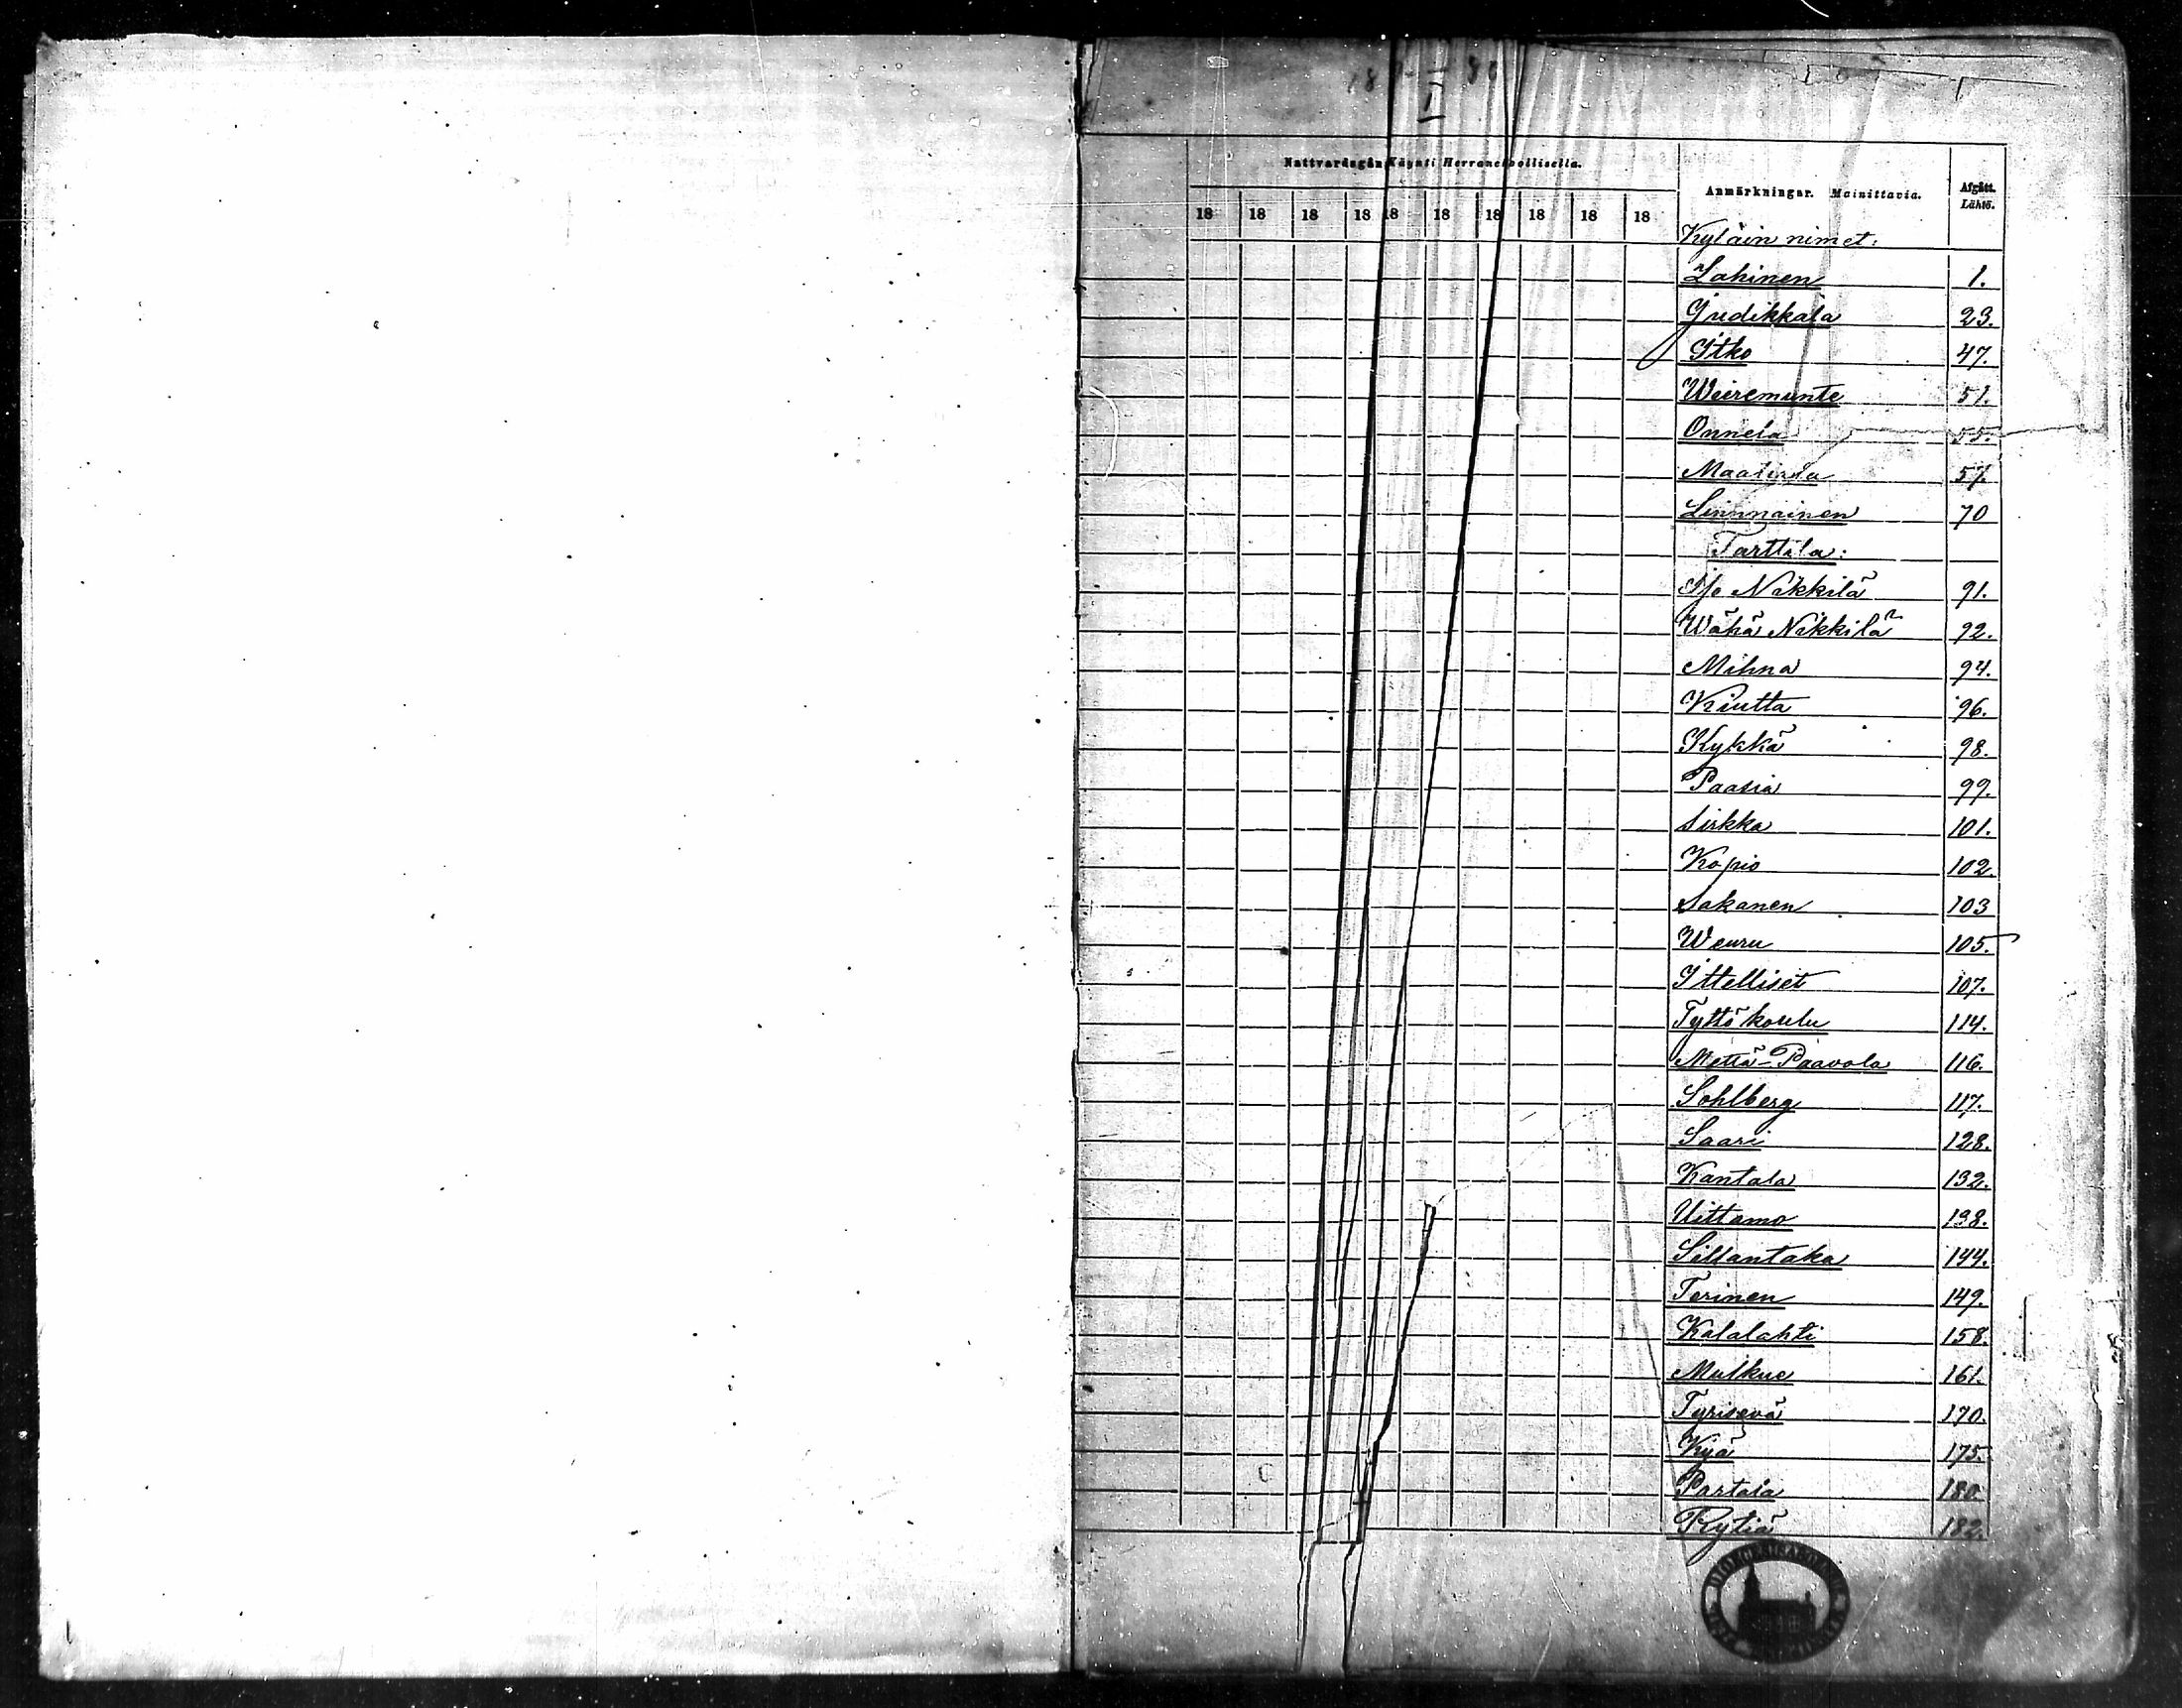 I
Nattvardsgån Käynti Herranehtoollisella.
Anmärkningar. Mainittavia.
Afgått. Lähtö.
18 18 18 18 18 18 18 18 18 18
Kyläin nimet:
Lahinen 1.
Judikkala 23.
Itko 47.
Weiremunte 51.
Onnela 55.
57.
Linnnainen 70
Tarttila:
Iso Nikkilä 91.
Wähä Nikkilä 92.
Mihna 94.
Kiutta 96.
Kykkä 98.
Paasia 99.
Sirkka 101.
Kopio 102.
Sakanen 103
Weuru 105.
Ittelliset 107.
Tyttökoulu 114.
Mettä-Paavola 116.
Sohlberg 117.
Saari 128.
Kantala 132.
Uittamo 138.
Sillantaka 144.
Terinen 149.
Kalalahti 158.
Mulkue 161.
Tyrisevä 170.
Kijä 175.
Partala 180
Rytiä 182.